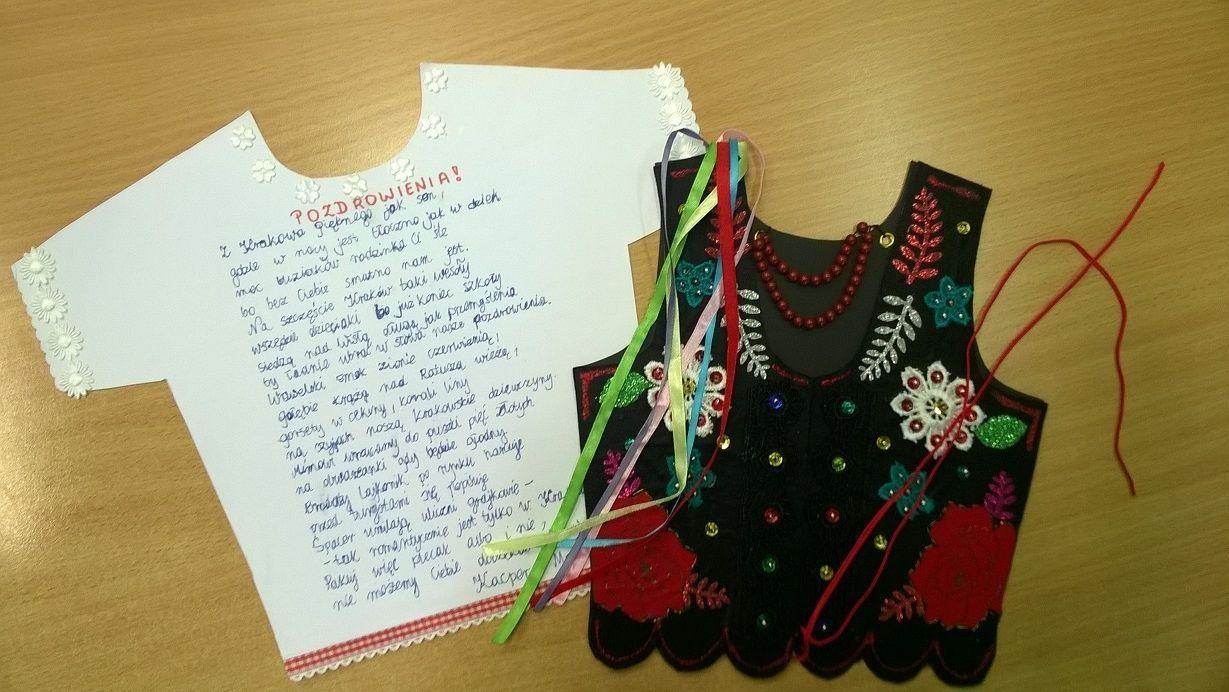 POZDROWIENIA!
Z Krakowa pięknego jak sen,
gdzie w nocy jest tłoczno jak w dzień
moc buziaków rodzinka Ci śle
bo bez Ciebie smutno nam jest.
Na szczęście Kraków taki wesoły
wszędzie dzieciaki, bo już koniec szkoły
siedzą nad Wisłą długą jak przemyślenia
by ładnie ubrać w słowa nasze pozdrowienia.
Wawelski smok zionie czerwienią,
gołębie krążą nad Ratusza wieżą,
gorsety w cekiny, korali liny
na szyjach noszą krakowskie dziewczyny.
Mimowi wrzucamy do puszki pięć złotych
na obwarzanki gdy będzie głodny
Brodaty Lajkonik po rynku harcuje
przed turystami się popisuje
Spacer umilają uliczni grajkowie -
- tak romantycznie jest tylko w Kra
Pakuj więc plecak albo i nie,
nie możemy Ciebie doczekać
Kacper M